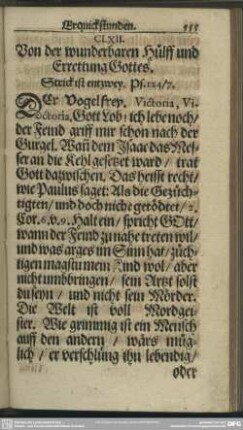 Erquickstunden. 355
CLXII.
Von der wunderbaren Hülff und
Errettung Gottes.
Strick ist entzwey. Ps. 124/7.
DEr Vogel frey. Victoria, Vi-
ctoria, Gott Lob; ich lebe noch/
der Feind griff mir schon nach der
Gurgel. Wañ dem Isaac das Mes-
ser an die Kehl gesetzt ward / trat
Gott dazwischen. Das heist recht/
wie Paulus saget: Als die Gezüch-
tigten/ und doch nicht getödtet / 2.
Cor. 6. v. 9. Halt ein / spricht GOtt/
wann der Feind zu nahe treten wil/
und was arges im Sinn hat / züch-
tigen magstu mein Kind wol / aber
nicht umbbringen / sein Artzt solst
du seyn / und nicht sein Mörder.
Die Welt ist voll Mordgei-
ster. Wie grimmig ist ein Mensch
auff den andern / wärs müg-
lich / er verschlüng ihn lebendig/
oder